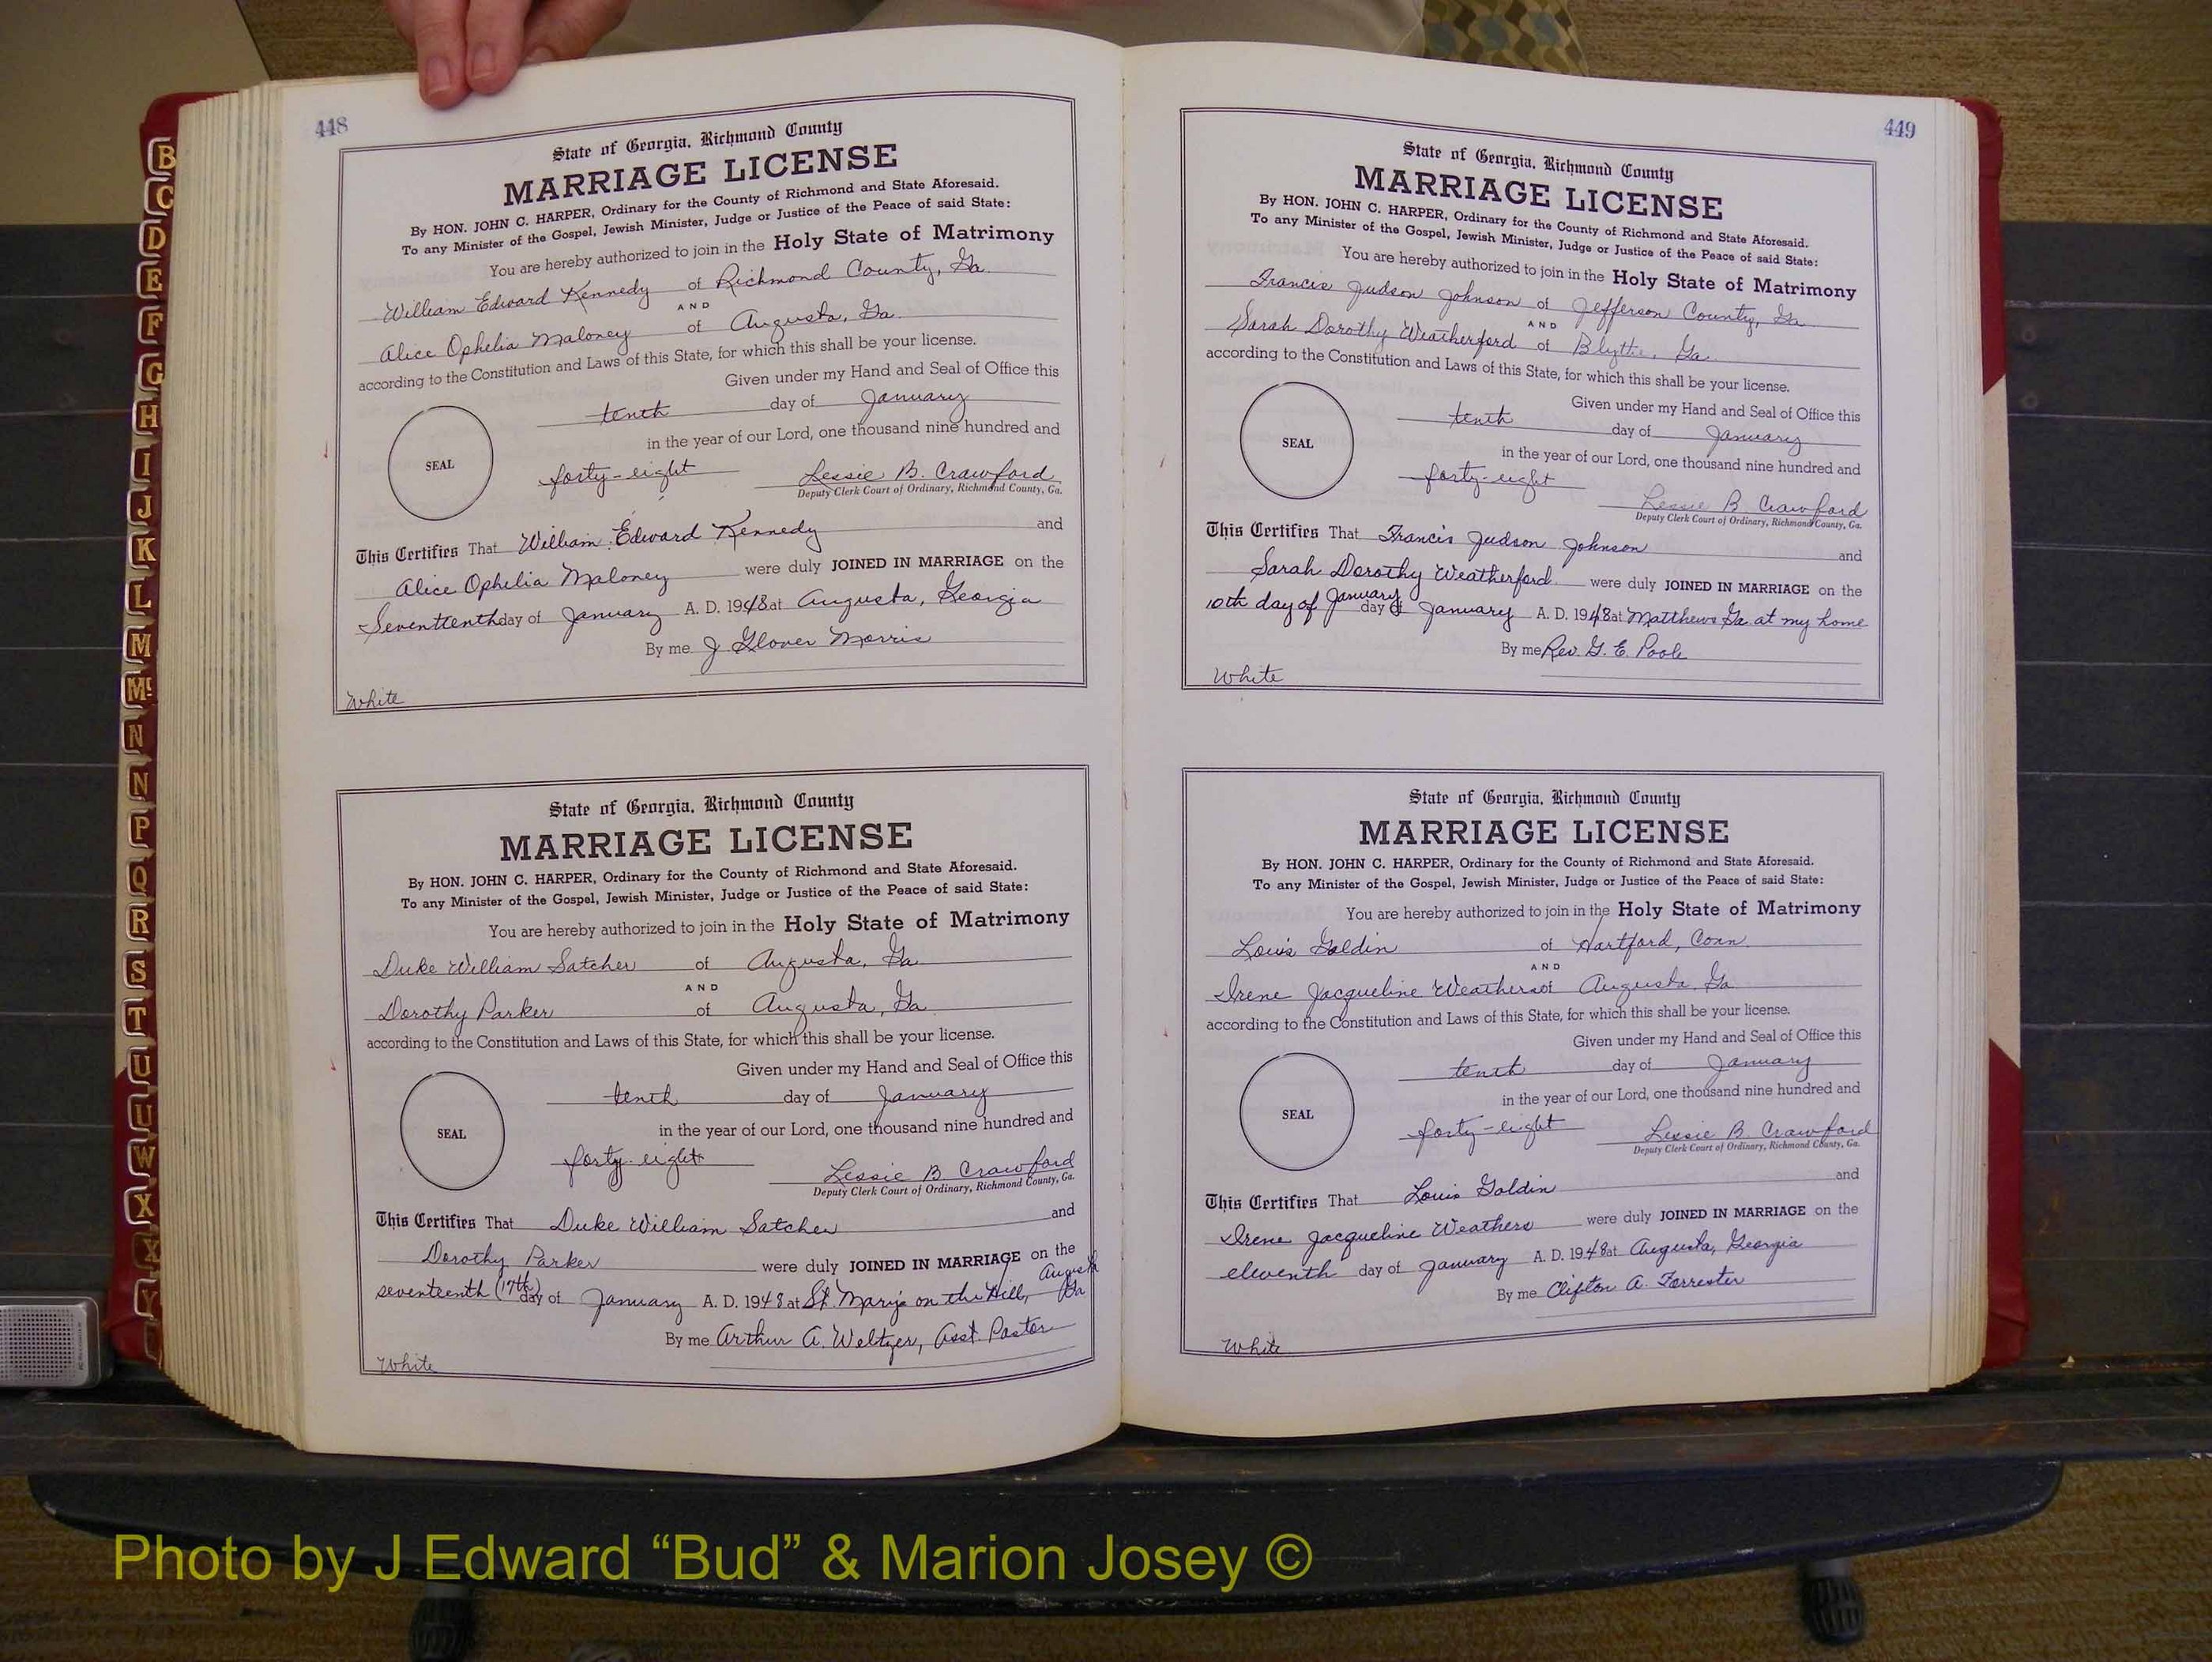 B
C
D
E
F
G
H
I
J
K
L
M
Mc
N
N
P
Q
R
S
T
U
U
W
X
X
Y
448
State of Georgia, Richmond County
MARRIAGE LICENSE
By HON. JOHN C. HARPER, Ordinary for the County of Richmond and State Aforesaid.
To any Minister of the Gospel, Jewish Minister, Judge or Justice of the Peace of said State:
You are hereby authorized to join in the Holy State of Matrimony
William Edward Kennedy of Richmond County, Ga.
AND
Alice Ophelia Maloney of Augusta, Ga.
according to the Constitution and Laws of this State, for which this shall be your license.
Given under my Hand and Seal of Office this
tenth day of January
in the year of our Lord, one thousand nine hundred and
SEAL
forty-eight Lessie B. Crawford
Deputy Clerk Court of Ordinary, Richmond County, Ga.
This Certifies That William Edward Kennedy and
Alice Ophelia Maloney were duly JOINED IN MARRIAGE on the
Seventtenth day of January A. D. 1948 at Augusta, Georgia
By me J Glover Morris
White
State of Georgia, Richmond County
MARRIAGE LICENSE
By HON. JOHN C. HARPER, Ordinary for the County of Richmond and State Aforesaid.
To any Minister of the Gospel, Jewish Minister, Judge or Justice of the Peace of said State:
You are hereby authorized to join in the Holy State of Matrimony
Duke William Satcher of Augusta, Ga.
AND
Dorothy Parker of Augusta, Ga.
according to the Constitution and Laws of this State, for which this shall be your license.
Given under my Hand and Seal of Office this
tenth day of January
in the year of our Lord, one thousand nine hundred and
SEAL
forty-eight Lessie B. Crawford
Deputy Clerk Court of Ordinary, Richmond County, Ga.
This Certifies That Duke William Satcher and
Dorothy Parker were duly JOINED IN MARRIAGE on the
seventeenth (17th) day of January A. D. 1948 at St. Mary's on the Hill, Augusta Ga
By me Arthur A. Weltzer, Asst. Pastor
White
449
State of Georgia, Richmond County
MARRIAGE LICENSE
By HON. JOHN C. HARPER, Ordinary for the County of Richmond and State Aforesaid.
To any Minister of the Gospel, Jewish Minister, Judge or Justice of the Peace of said State:
You are hereby authorized to join in the Holy State of Matrimony
Francis Judson Johnson of Jefferson County, Ga
AND
Sarah Dorothy Weatherford of Blythe, Ga.
according to the Constitution and Laws of this State, for which this shall be your license.
Given under my Hand and Seal of Office this
tenth day of January
in the year of our Lord, one thousand nine hundred and
SEAL
forty-eight
Lessie B. Crawford
Deputy Clerk Court of Ordinary, Richmond County, Ga.
This Certifies That Francis Judson Johnson and
Sarah Dorothy Weatherford were duly JOINED IN MARRIAGE on the
10th day of January day of January A. D. 1948 at Matthews Ga. at my home
By me Rev. G. E. Poole
White
State of Georgia, Richmond County
MARRIAGE LICENSE
By HON. JOHN C. HARPER, Ordinary for the County of Richmond and State Aforesaid.
To any Minister of the Gospel, Jewish Minister, Judge or Justice of the Peace of said State:
You are hereby authorized to join in the Holy State of Matrimony
Louis Goldin of Hartford, Conn.
AND
Irene Jacqueline Weathers of Augusta, Ga.
according to the Constitution and Laws of this State, for which this shall be your license.
Given under my Hand and Seal of Office this
tenth day of January
in the year of our Lord, one thousand nine hundred and
SEAL
forty-eight Lessie B Crawford
Deputy Clerk Court of Ordinary, Richmond County, Ga.
This Certifies That Louis Goldin and
Irene Jacqueline Weathers were duly JOINED IN MARRIAGE on the
eleventh day of January A. D. 1948 at Augusta, Georgia
By me Clifton A. Forrester
White
Photo by J Edward “Bud” & Marion Josey ©